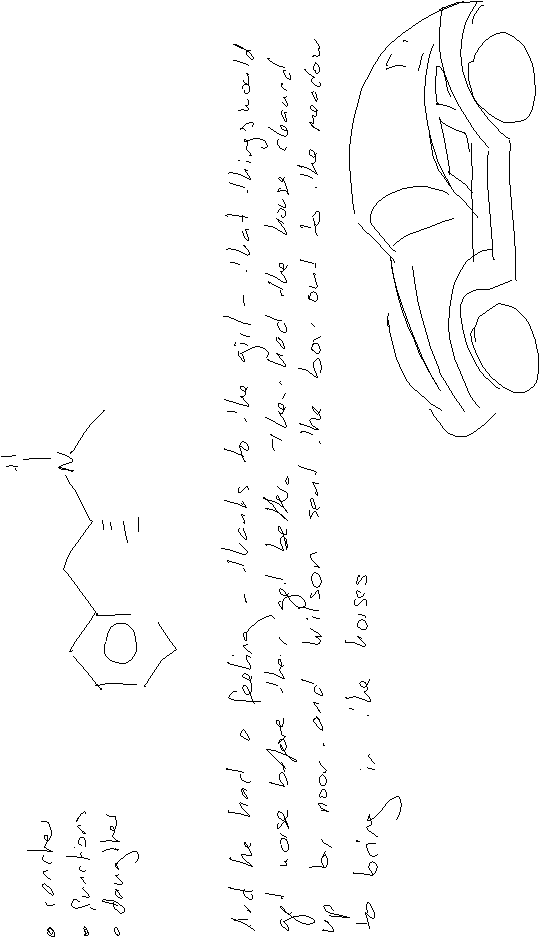 • rancher
• functions
• daughter
H N
And he had a feeling - thanks to the girl - that things would
get worse before they got better. They had the house cleaned
up by noon, and Wilson sent the boy out to the meadow
to bring in the horses